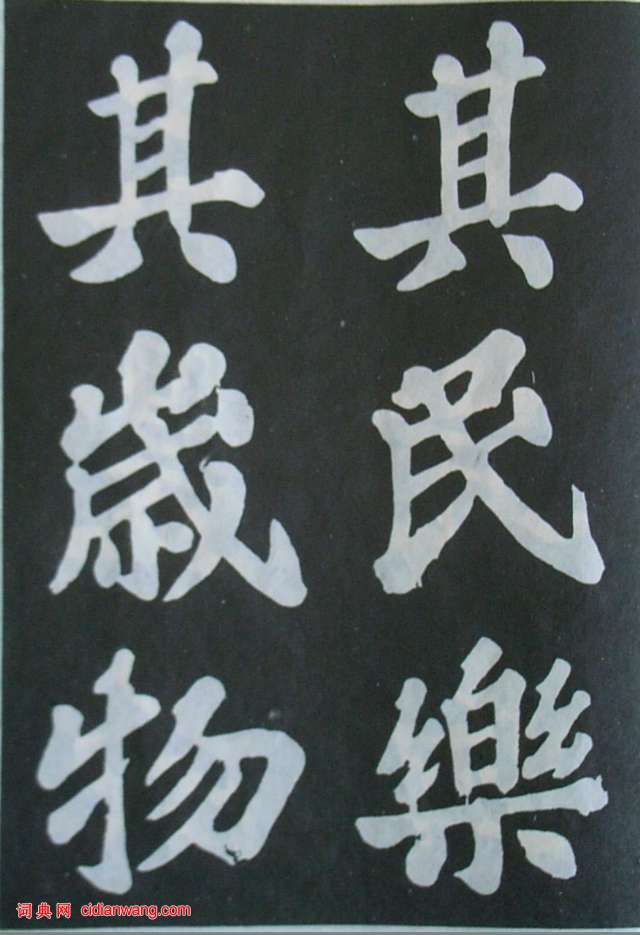 其民樂
其歲物
词典网 cidianwang.com